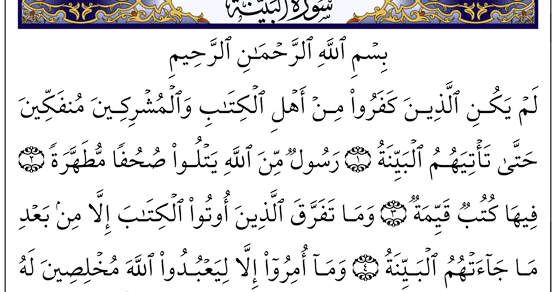 سُورَةُ الْبَيِّنَةِ
بِسْمِ ٱللَّهِ ٱلرَّحْمَـٰنِ ٱلرَّحِيمِ
لَمْ يَكُنِ ٱلَّذِينَ كَفَرُوا۟ مِنْ أَهْلِ ٱلْكِتَـٰبِ وَٱلْمُشْرِكِينَ مُنفَكِّينَ
حَتَّىٰ تَأْتِيَهُمُ ٱلْبَيِّنَةُ ١ رَسُولٌ مِّنَ ٱللَّهِ يَتْلُوا۟ صُحُفًا مُّطَهَّرَةً ٢
فِيهَا كُتُبٌ قَيِّمَةٌ ٣ وَمَا تَفَرَّقَ ٱلَّذِينَ أُوتُوا۟ ٱلْكِتَـٰبَ إِلَّا مِنۢ بَعْدِ
مَا جَآءَتْهُمُ ٱلْبَيِّنَةُ ٤ وَمَآ أُمِرُوٓا۟ إِلَّا لِيَعْبُدُوا۟ ٱللَّهَ مُخْلِصِينَ لَهُ